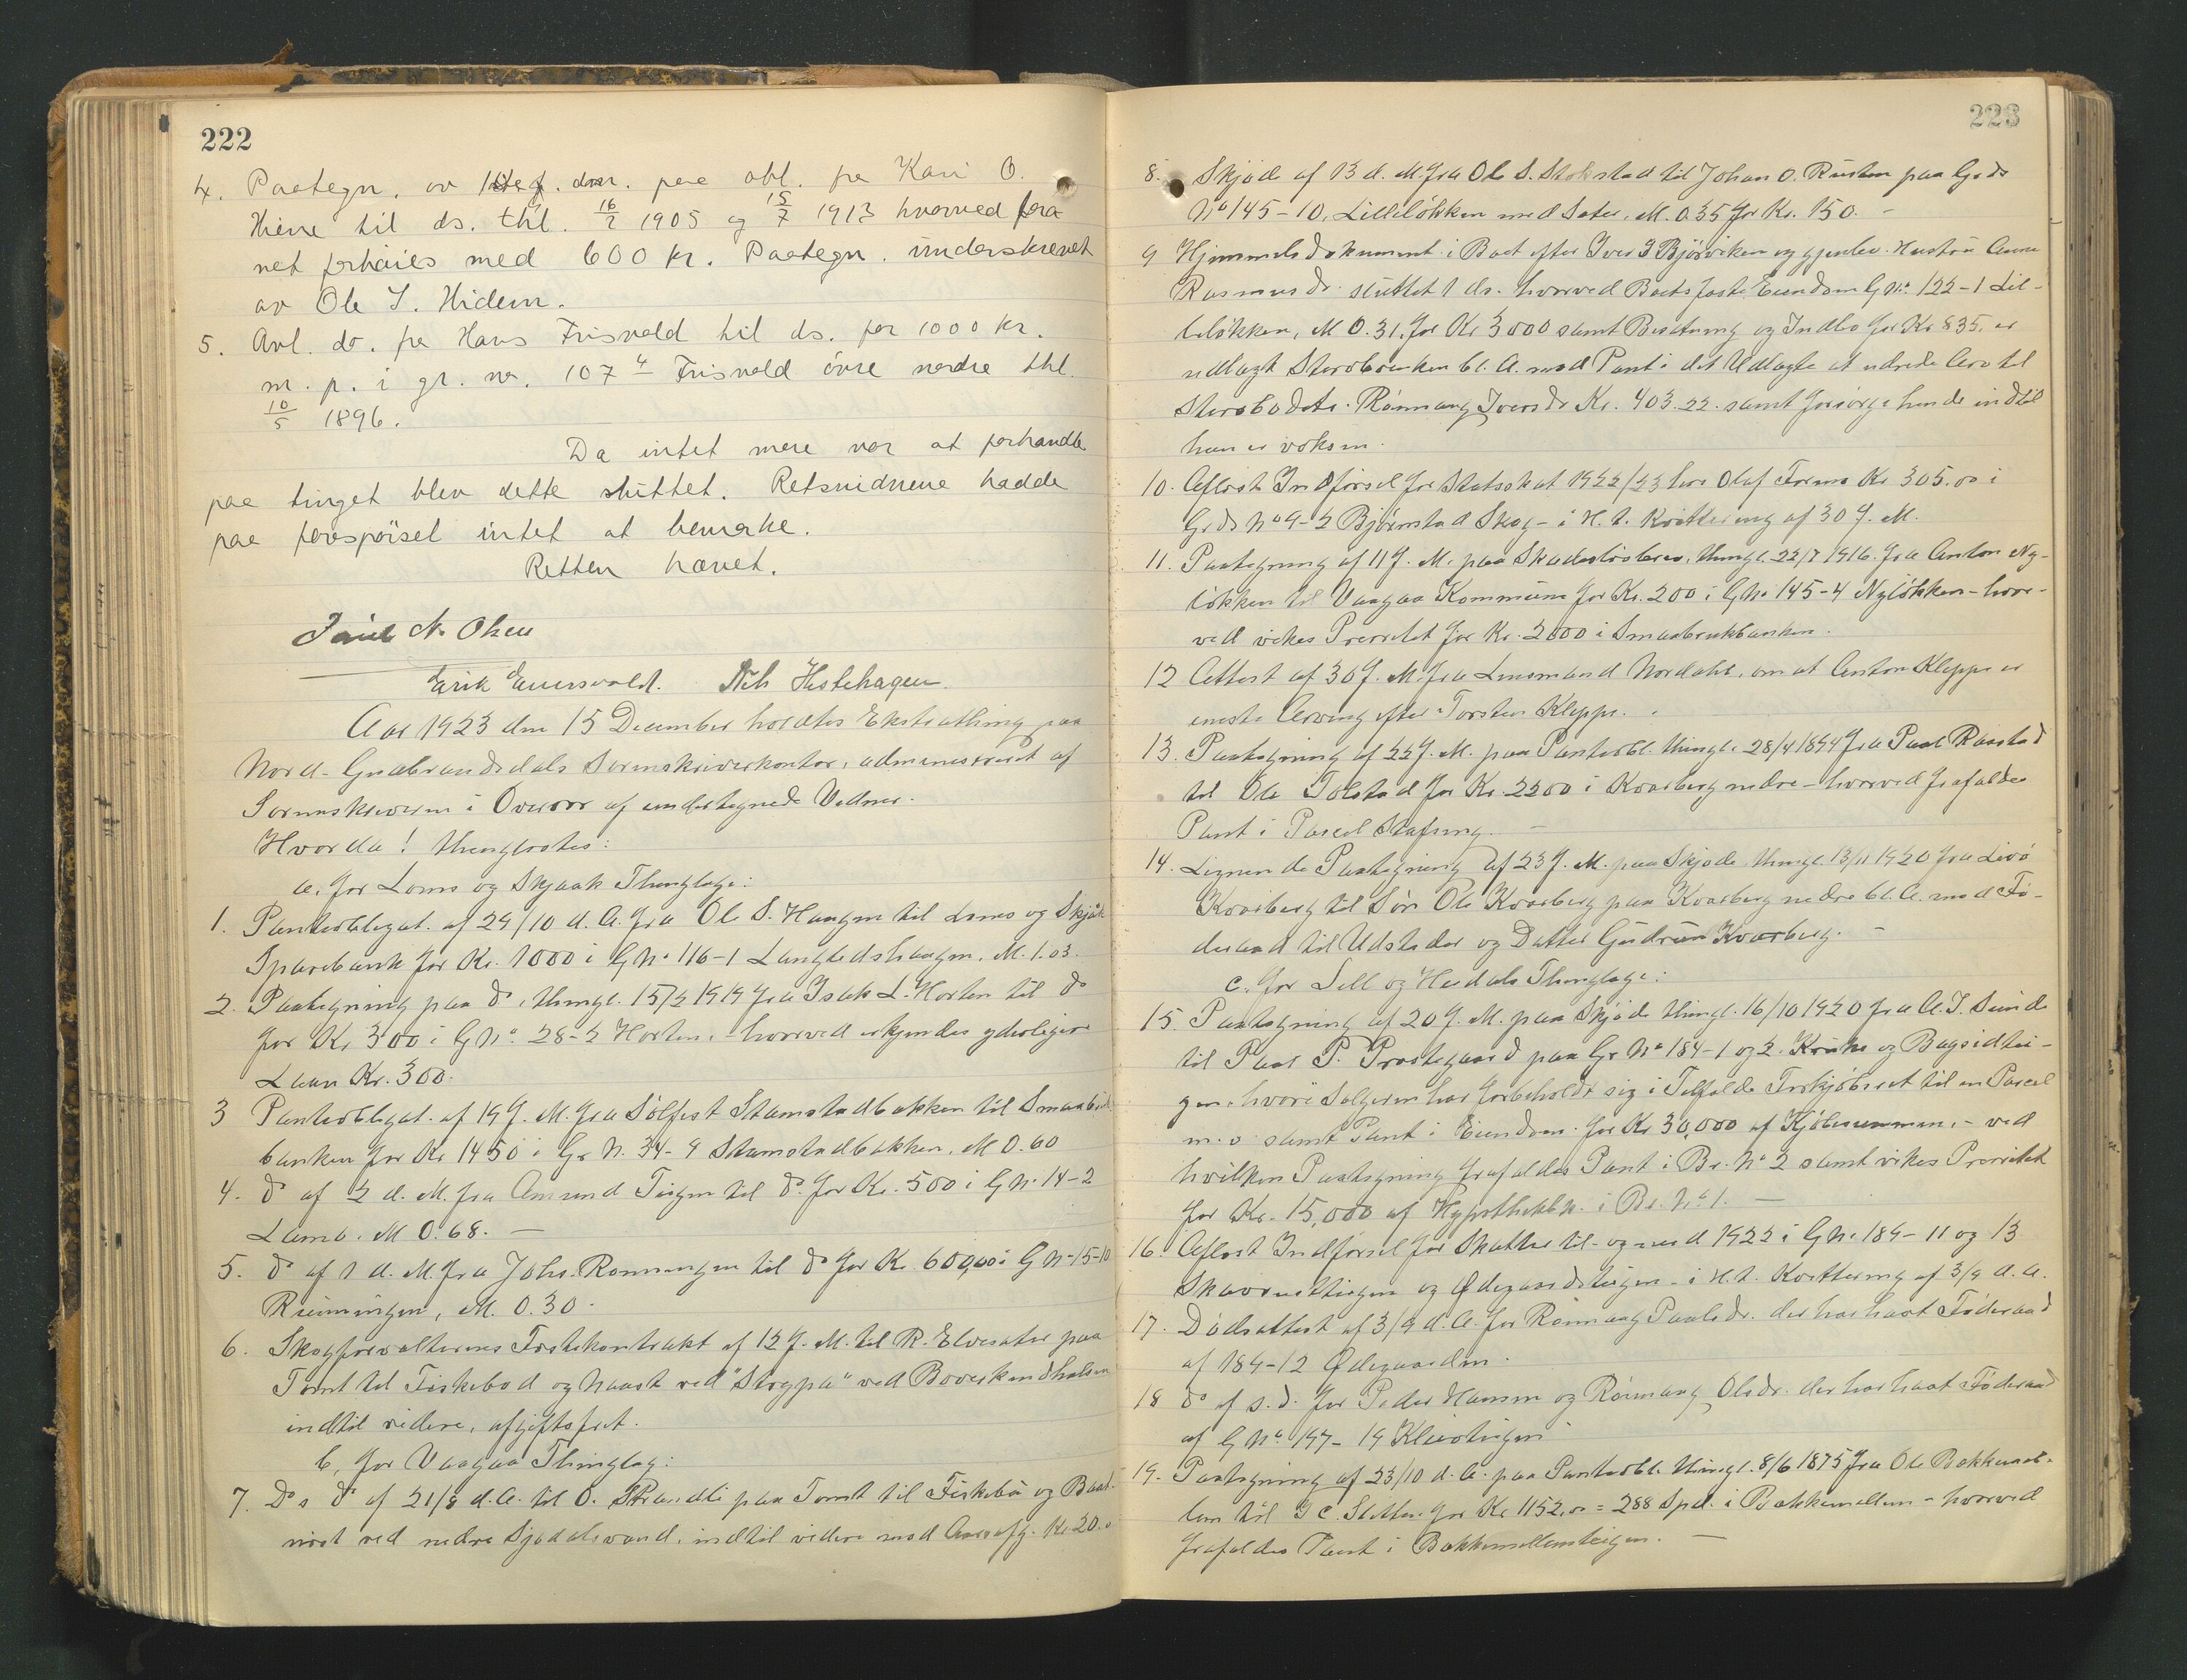 222
4. Paategn. av dsn. paa obl. fra Kari O.
Hiene til ds. thl. 16/2 1905 og 15/7 1913 hvorved pan-
net forhöies med 600 kr. Paategn. underskrevet
av Ole I. Hidem.
5. Avl. do. fra Hans Frisvold til ds. for 1000 kr.
m. p. i gr. nr. 107 4 Frisvold övre nordre thl.
10/5 1896.
Da intet mere var at forhandle
paa tinget blev dette sluttet. Retsvidnene hadde
paa forespörsel intet at bemerke.
Retten hævet.
Paul N. Olsen
Erik Enersvold. Hestehagen
Aar 1923 den 15 December holdtes Extrathing paa
Nord-Gudbrandsdals Sorenskriverkontor, administreret af
Sorenskriveren i Overvær af undertegnede Vidner.
Hvorda! thinglæstes:
a. for Loms og Skjaak Thinglag:
1. Panteobligat. af 29/10 d. A. fra Ole S. Haugen til Loms og Skjåk
Sparebank for Kr. 1000 i G.No 116-1 Langledshaugen. M. 1.03.
2. Paategning paa do, thingl. 15/2 1919 fra Isak L. Horten til do
for Kr. 300 i G.No. 28-2 Horten, - hvorved erkjendes yderligere
Laan Kr. 300.
3 Panteobligat. af 19 f. M. fra Sølfest Stamstadbakken til Smaabruk-
banken for Kr 1450 i Gr. N. 34-9 Stamstadbakken. M 0.60
4. do af 2 d. M. fra Amund Teigen til do for Kr. 500 i G.No. 14-2
Lamo. M 0.68. —
5. do af 1 d. M. fra Johs. Rønningen til do for Kr. 600,00 i G.No-15-10
Rønningen, M. 0.30.
6. Skogforvalterens Festekontrakt af 12 f. M. til R. Elvesæter paa
Tomt til Fiskebod og Naust ved "Stegpa" ved Bøverkindhalsen
indtil videre, afgiftsfrit.
b. for Vaagaa Thinglag:
7. Ds do af 21/8 d. A. til O. Strandli paa Tomt til Fiskebu og Baad-
nøst ved nedre Sjodalsvand, indtil videre mod Aarsafg. Kr. 20.
223
8. Skjøde af 13 d. M. fra Ole S. Stokstad til Johan O. Rusten paa Grds
No 145-10, Lilleløkken med Sæter, M. 0.35 for Kr. 150. -
9 Hjemmelsdokument i Boet efter Iver I Bjørviken og gjenlev. Hustru Anne
Rasmusdr. sluttet 1 ds. hvorved Boets faste Eiendom G.No. 122-1 Lil-
leløkken, M 0.31, for Kr 3000 samt Besætning og Indbo for Kr 835, er
udlagt Stervboenken bl. A. mod Pant i det Udlagte at udrede Arv til
Stervbodatr. Rønnaug Iversdr. Kr. 403.22. samt forsørge hende indtil
hun er voksen.
10. Aflæst Indførsel for Statsskat 1922/23 hos Olaf Formo Kr 305.00 i
Grds No 9-2 Bjørnstad Skog - i H. t. Kvittering af 30 f. M.
11. Paategning af 11 f. M. paa Skadesløsbrev, thingl. 22/7 1916 fra Anton Ny-
løkken til Vaagaa Kommune for Kr. 200 i G.No 145-4 Nyløkken - hvor-
ved vikes Prioritet for Kr. 2000 i Smaabrukbanken.
12 Attest af 30 f. M. fra Lensmand Nordahl, om at Anton Kleppe er
eneste Arving efter Torsten Kleppe.
13. Paategning af 22 f. M. paa Panteobl. thingl. 28/4 1894 fra Paal Raastad
til Ole Tolstad for Kr. 2200 i Kvarberg nedre - hvorved frafaldes
Pant i Parcel Stafseng. —
14. Lignende Paategning af 23 f. M. paa Skjøde thingl. 13/11 1920 fra Livø
Kvarberg til Søn Ole Kvarberg paa Kvarberg nedre bl. A. mod Fø-
deraad til Udsteder og Datter Gudrun Kvarberg. —
c. for Sell og Heidals Thinglag:
15. Paategning af 20 f. M. paa Skjøde thingl. 16/10 1920 fra A. I. Sunde
til Paal P. Prestegaard paa Gr No 184-1 og 2. Kruke og Bagsidtei-
gen, hvori Sælgeren har forbeholdt sig i Tilfælde Forkjøbsret til en Parcel
m.v samt Pant i Eiendom. for Kr 30,000 af Kjøbesummen, - ved
hvilken Paategning frafaldes Pant i Br. No 2 samt vikes Prioritet
for Kr. 15,000 af Hypothekbk. i Br. No 1. —
16. Aflæst Indførsel for Skatter til- og med 1922 i G.No. 184-11 og 13
og Ødegaardsteigen - i H. t. Kvittering af 3/9 d. A.
17. Dødsattest af 3/9 d. A. for Rønnaug Paalsdr. der har havt Føderaad
af 184-12 Ødegaarden.
18 do af s. d. for Peder Hansen og Rønnaug Olsdr. der har havt Føderaad
af G.No. 197-19 Kleivteigen
19. Paategning af 23/10 d. A. paa Panteobl. thingl. 8/6 1875 fra Ole Bakkemel-
lem til I C. for Kr 1152,00 = 288 Spd. i Bakkemellem - hvorved
frafaldes Pant i Bakkemellemteigen. —